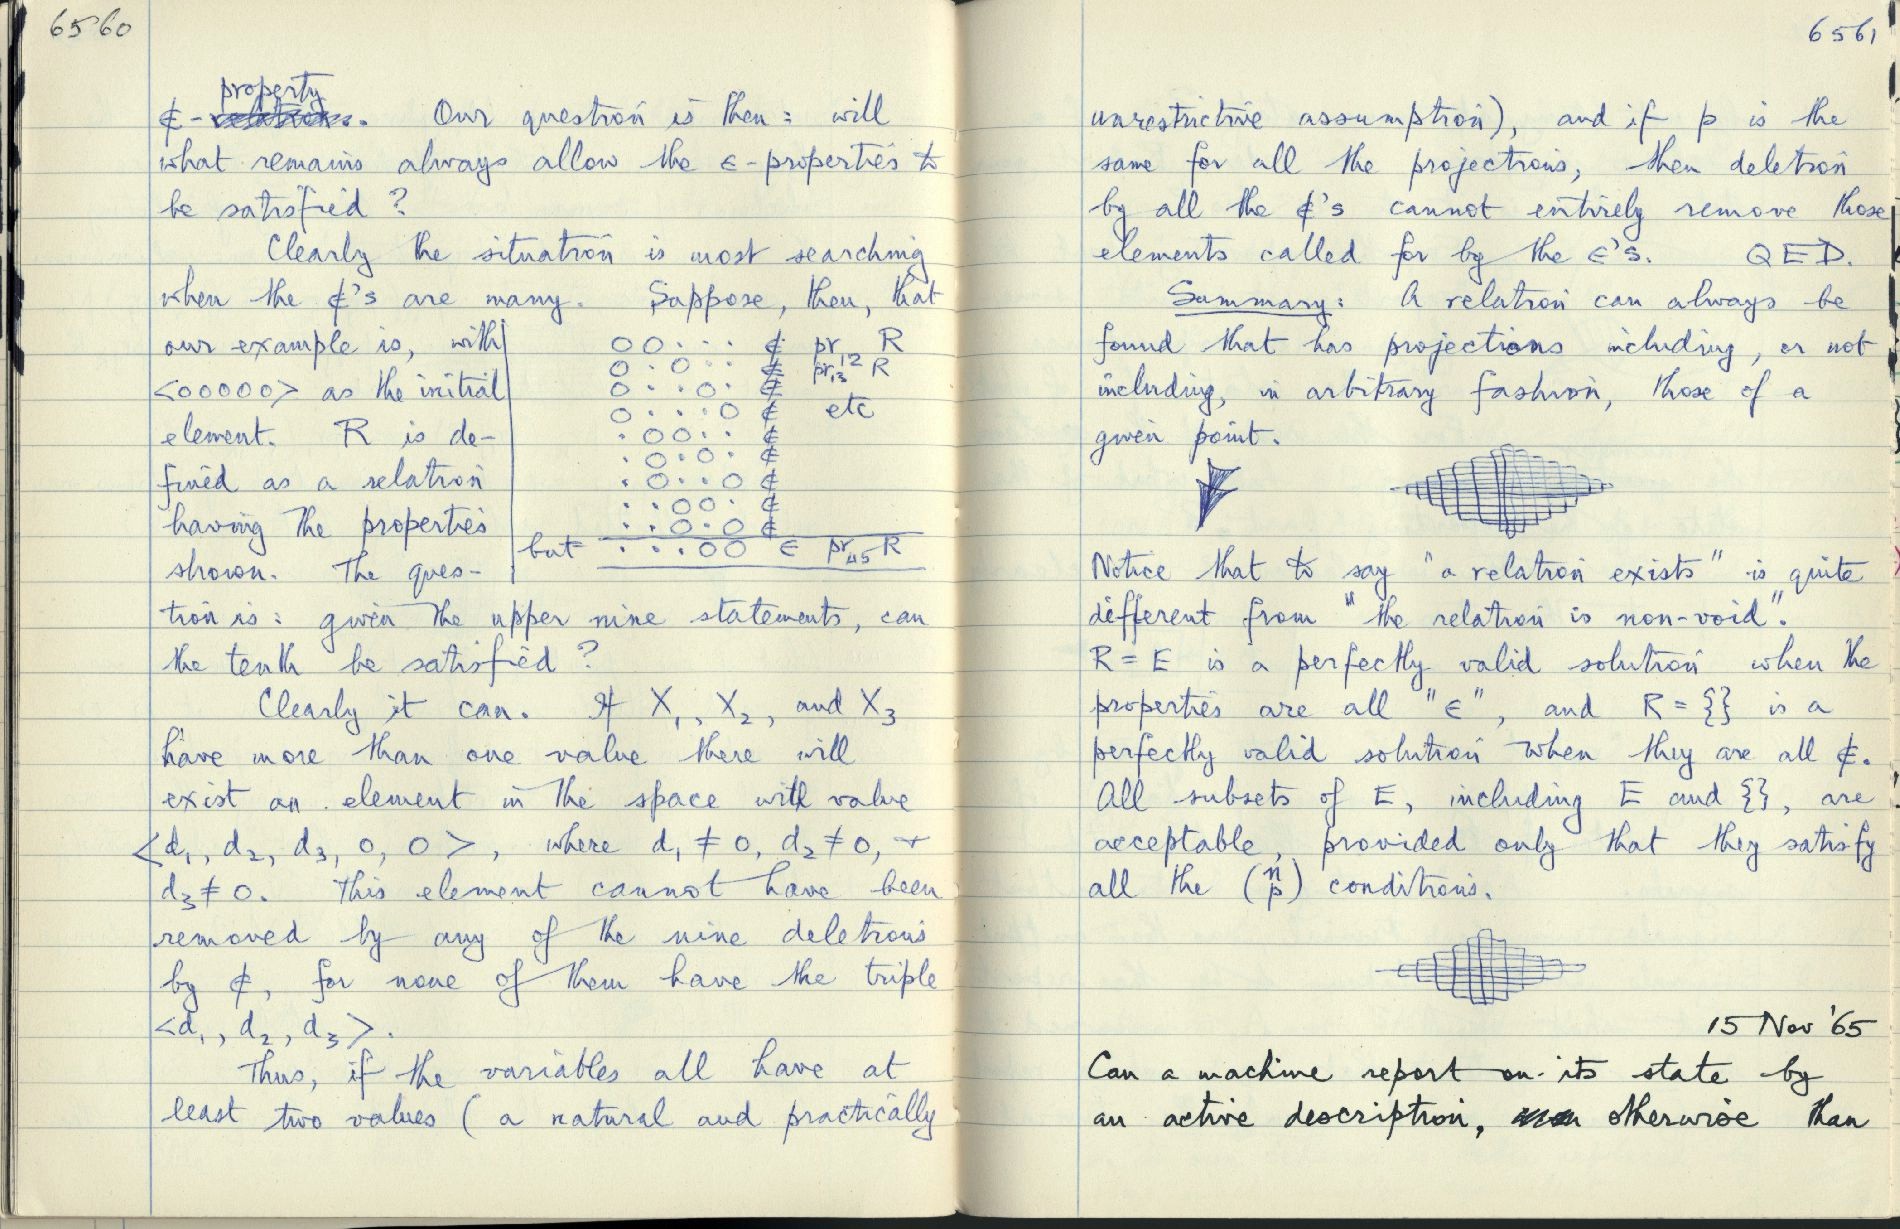 6560
property
∉-relation. Our question is then: will
what remains always allow the ∈-properties to
be satisfied?
Clearly the situation is most searching
when the ∉'s are many. Suppose, then, that
our example is, with
<00000> as the initial
element. R is de-
fined as a relation
having the properties
shown. The ques-
00... ∉ pr12 R
0.0.. ∉ pr13 R
0..0. ∉
0...0 ∉ etc
.00.. ∉
.0.0. ∉
.0..0 ∉
..00. ∉
..0.0 ∉
but ...00 ∈ pr45 R
tion is: given the upper nine statements, can
the tenth be satisfied?
Clearly it can. If X1, X2, and X3
have more than one value there will
exist an element in the space with value
<d1, d2, d3, 0, 0>, where d1 ≠ 0, d2 ≠ 0, +
d3 ≠ 0. This element cannot have been
removed by any of the nine deletions
by ∉, for none of them have the triple
<d1, d2, d3>.
Thus, if the variables all have at
least two values (a natural and practically
6561
unrestrictive assumption), and if p is the
same for all the projections, then deletion
by all the ∉'s cannot entirely remove those
elements called for by the ∈'s. QED.
Summary: A relation can always be
found that has projections including, or not
including, in arbitrary fashion, those of a
given point.
Notice that to say "a relation exists" is quite
different from "the relation is non-void".
R = E is a perfectly valid solution when the
properties are all "∈", and R = {} is a
perfectly valid solution when they are all ∉.
All subsets of E, including E and {}, are
acceptable, provided only that they satisfy
all the (n p) conditions.
15 Nov '65
Can a machine report on its state by
an active description, otherwise than